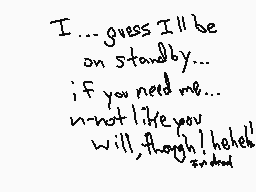 I... guess I'll be
on standby...
if you need me...
n-not like you
will, though! heheh!